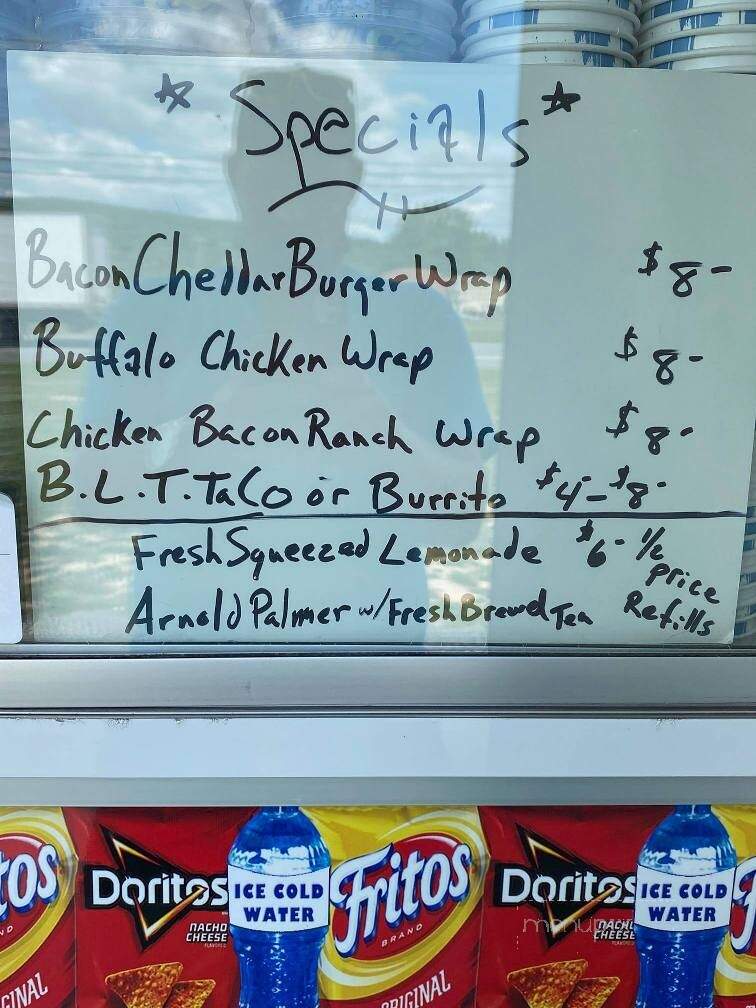 * Specials *
Bacon Cheddar Burger Wrap $8-
Buffalo Chicken Wrap $8-
Chicken Bacon Ranch Wrap $8-
B.L.T. Taco or Burrito $4-$8-
Fresh Squeezed Lemonade $6- 1/2 price
Arnold Palmer w/Fresh Brewed Tea Refills
tos Doritos ICE COLD WATER Fritos Doritos ICE COLD WATER
NACHO CHEESE BRAND NACHO CHEESE
INAL ORIGINAL